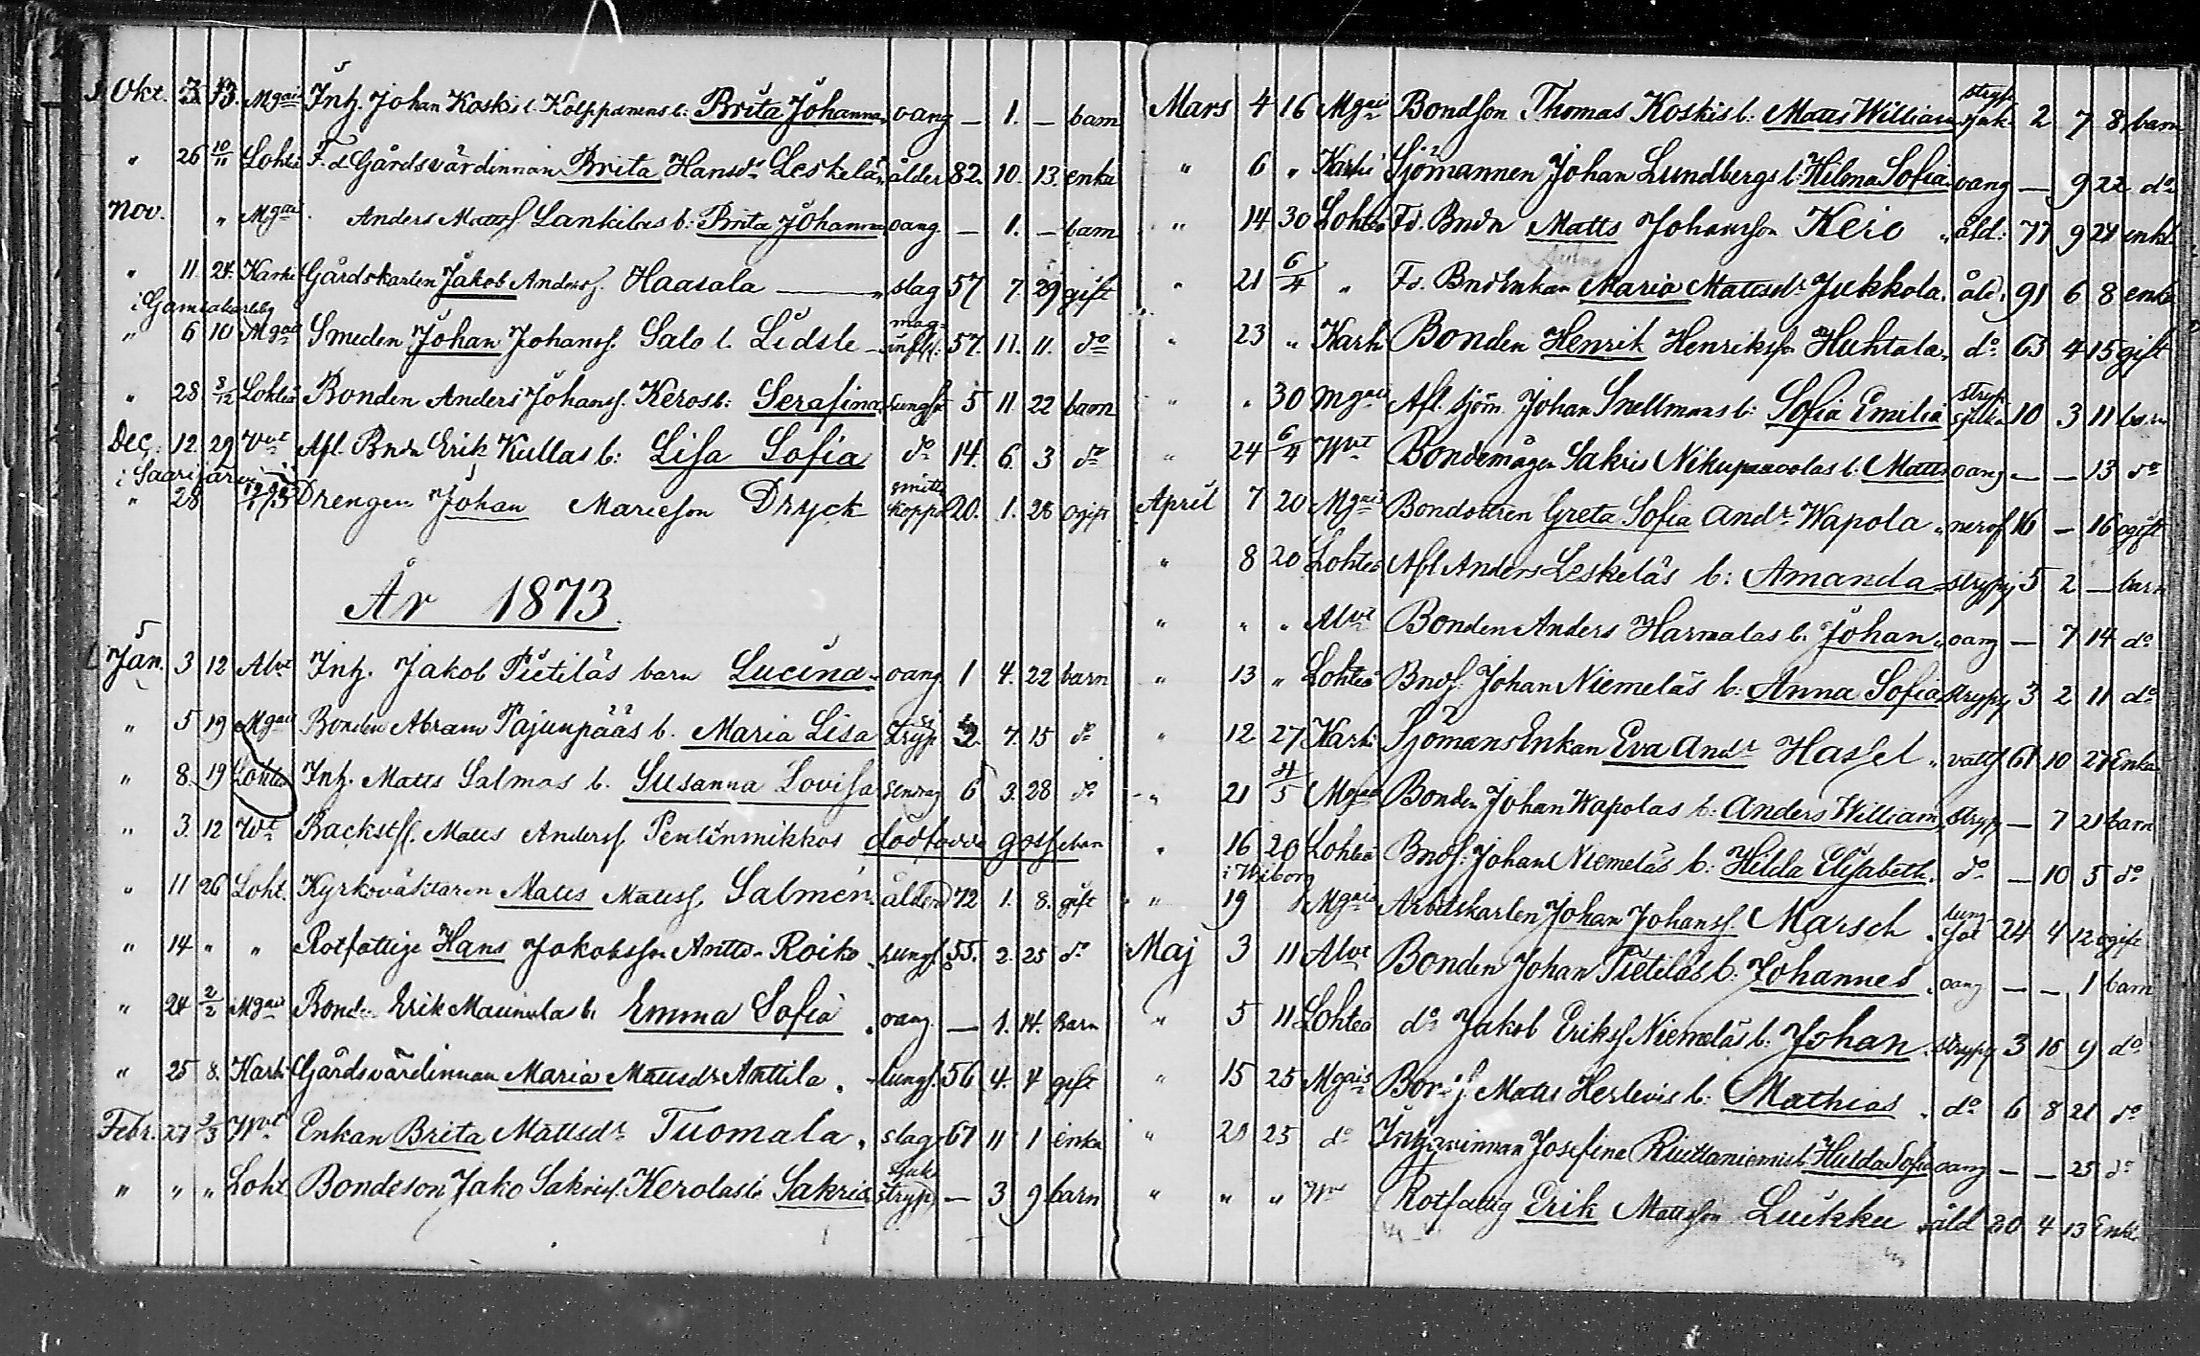 Okt. 13. Mgais Inh. Johan Koskis b. Brita Johanna oäng — 1. — barn
" 26 10/11 Lohteå F.d. Gårdsvärdinnan Brita Hansdr Leskelä, ålder 82. 10. 13. enka
Nov. " Mgais Anders Matts Lankilas b: Brita Johanna oäng. — 1. — barn
" 11. 24. Karhi Gårdskarlen Jakob Anderss. Haasala — " slag 57 7. 29 gift
i Gamlakarleby
" 6 10 Mgais Smeden Johan Johanss. Salo l. Lidsle — mag-infl. 57. 11. 11. do
" 28 8/12 Lohteå Bonden Anders Johanss. Keros b: Serafina lungs 5 11. 22 barn
Dec. 12. 29 Wvt Afl. Bndn Erik Kullas b: Lisa Sofia do 14. 6. 3 do
i Saarijärvi
" 28 Drengen Johan Marieson Dryck smittkoppor 20. 1. 28 ogift
År 1873.
Jan. 3 12 Alvt Inh. Jakob Pietiläs barn Lucina " oäng. 1 4. 22 barn
" 5 19 Mgais Bonden Abram Pajunpääs b. Maria Lisa stryp 2. 7. 15 do
" 8. 19 Lohteå Inh. Matts Salmos b. Susanna Lovisa 6 3. 28 do
" 3. 12 Wvt Backstfl. Matts Anderss. Pentinmikkos dödfödde gossebarn
" 11 26 Loht. Kyrkoväktaren Matts Matts. Salmén ålderd 72 1. 8. gift
" 14 " " Rotfattige Hans Jakobsson Antto-Roiko lungs 55. 2. 25 do
" 24 2/2 Mgais Bonden Erik Maunulas b. Emma Sofia " oäng — 1. 14. Barn
" 25 8. Karhi Gårdsvärdinnan Maria Mattsdr Anttila. lungs. 56 4. 4 gift
Febr. 27 2/3 Wvt Enkan Brita Mattsdr Tuomala. slag 67 11 1 enka
" " " Loht Bondeson Jako Sakriss. Kerolas b. Sakris stryp — 3 9 barn
Mars 4 16 Mgais Bondson Thomas Koskis b. Matts William strypsjuk 2 7 8 barn
" 6 " Karhi Sjömannen Johan Lundbergs b. Hilma Sofia oäng — 9 22 do
" 14 30 Lohteå Fd. Bndn Matts Johansson Keio " åld: 77 9 21 enkl.
" 21 6/4 " Fd. BndEnkan Maria Mattsdr Jukkola. åld. 91 6 8 enka
" 23 " Karh Bonden Henrik Henriksson Huhtala. do 63 4 15 gift
" " 30 Mgais Afl. sjöm Johan Snellmans b: Sofia Emilia strypsjuka 10 3 11 barn
" 24 6/4 Wvt Bondemågen Sakris Nikupaavolas b. Matts oäng — — 13 do
April 7 20 Mgais Bondottren Greta Sofia Andr Wapola " nerof 16 — 16 ogift
" 8 20 Lohteå Afl Anders Leskeläs b: Amanda strypsj 5 2 — barn
" " " Alvt Bonden Anders Harmalas b. Johan " oäng — 7 14 do
" 13 " Lohteå Bnds. Johan Niemeläs b: Anna Sofia strypsj 3 2 11 do
" 12 27 Karhi SjömansEnkan Eva Andr Hassel " vatts 61 10 27 Enka
" 21 4/5 Mgais Bonden Johan Wapolas b: Anders William, stryp — 7 21 barn
" 16 20 Lohteå Bnds: Johan Niemeläs b: Hilda Elisabeth. do — 10 5 do
i Wiborg
" 19 Mgais Arbetskarlen Johan Johanss. Marsch " lungsot 24 4 12 ogift
Maj 3 11 Alvt Bonden Johan Pietiläs b: Johannes. oäng — — 1 barn
" 5 11 Lohteå do Jakob Eriks Niemeläs b: Johan strypsj 3 10 9 do
" 15 25 Mgais Matts Herlevis b: Mathias. do 6 8 21 do
" 21 25 do Inh.qvinnan Josefina Ruittaniemis b Hulda Sofia oäng — — 25 do
" " " Wvt Rotfattig Erik Mattsson Luikku " åld 80 4 13 Enkl.